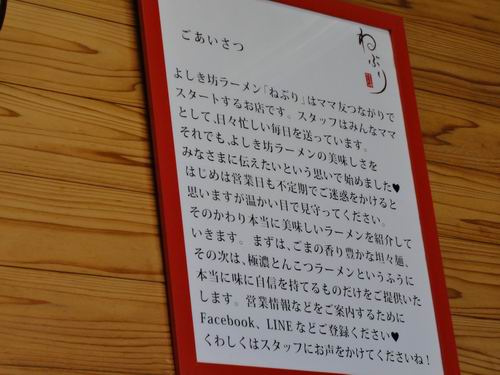 ねぶり
ごあいさつ
よしき坊ラーメン「ねぶり」はママ友つながりで
スタートするお店です。スタッフはみんなママ
として、日々忙しい毎日を送っています。
それでも、よしき坊ラーメンの美味しさを
みなさまに伝えたいという思いで始めました♥
はじめは営業日も不定期でご迷惑をかけると
思いますが温かい目で見守ってください。
そのかわり本当に美味しいラーメンを紹介して
いきます。まずは、ごまの香り豊かな坦々麺、
その次は、極濃とんこつラーメンというふうに
本当に味に自信を持てるものだけをご提供いた
します。営業情報などをご案内するために
Facebook、LINEなどご登録ください♥
くわしくはスタッフにお声をかけてくださいね!